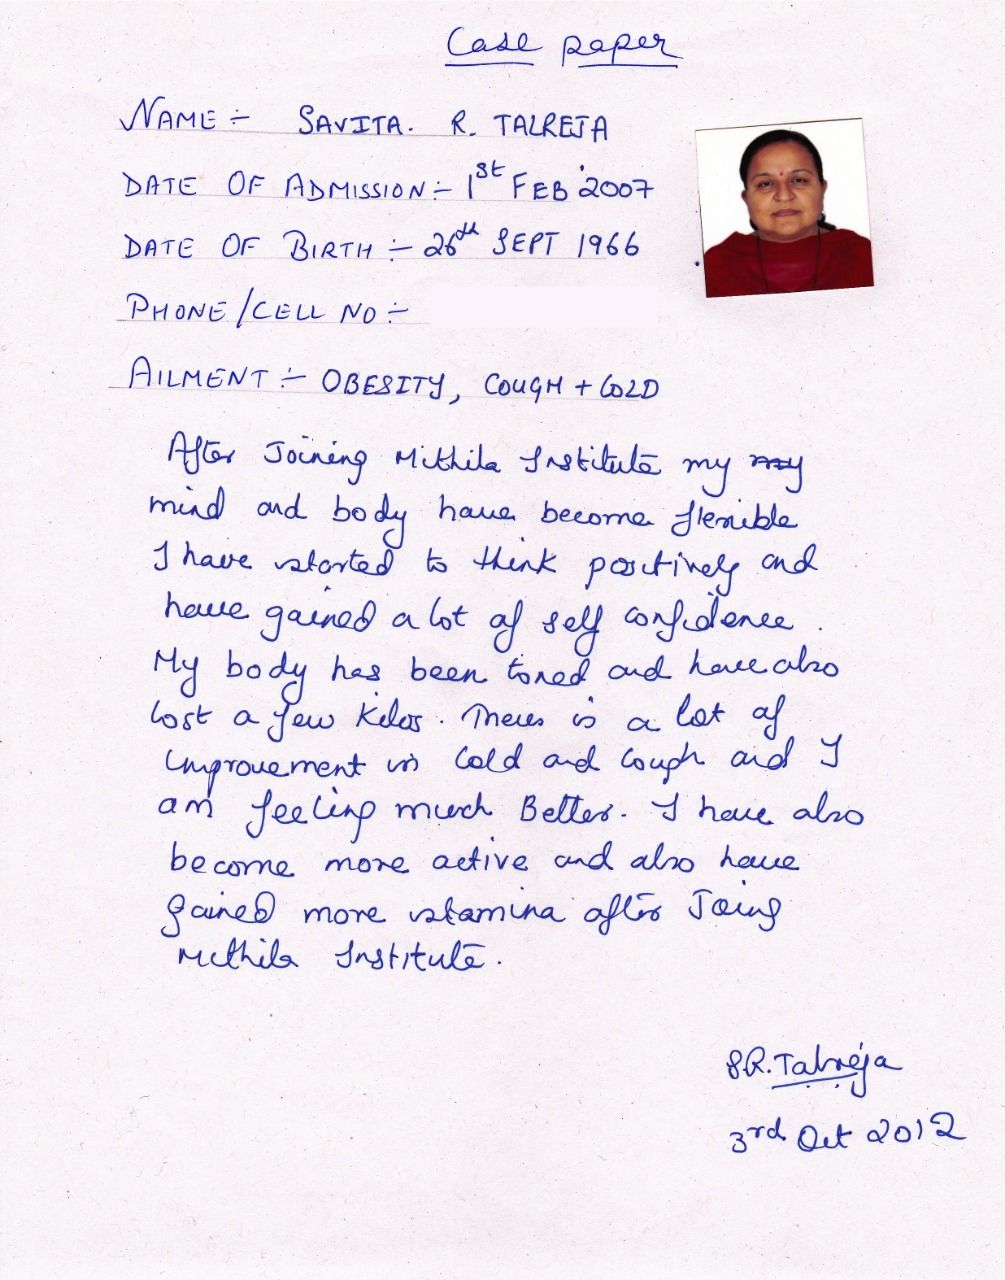 Case paper
NAME :- SAVITA. R. TALREJA
DATE OF ADMISSION :- 1st FEB '2007
DATE OF BIRTH :- 26th SEPT 1966
PHONE/CELL NO :-
AILMENT :- OBESITY, COUGH + COLD
After Joining Mithila Institute my my
mind and body have become flexible
I have started to think positively and
have gained a lot of self confidence.
My body has been toned and have also
lost a few kilos. There is a lot of
improvement in Cold and Cough and I
am feeling much Better. I have also
become more active and also have
gained more stamina after Joing
Mithila Institute.
S.R. Talreja
3rd Oct 2012